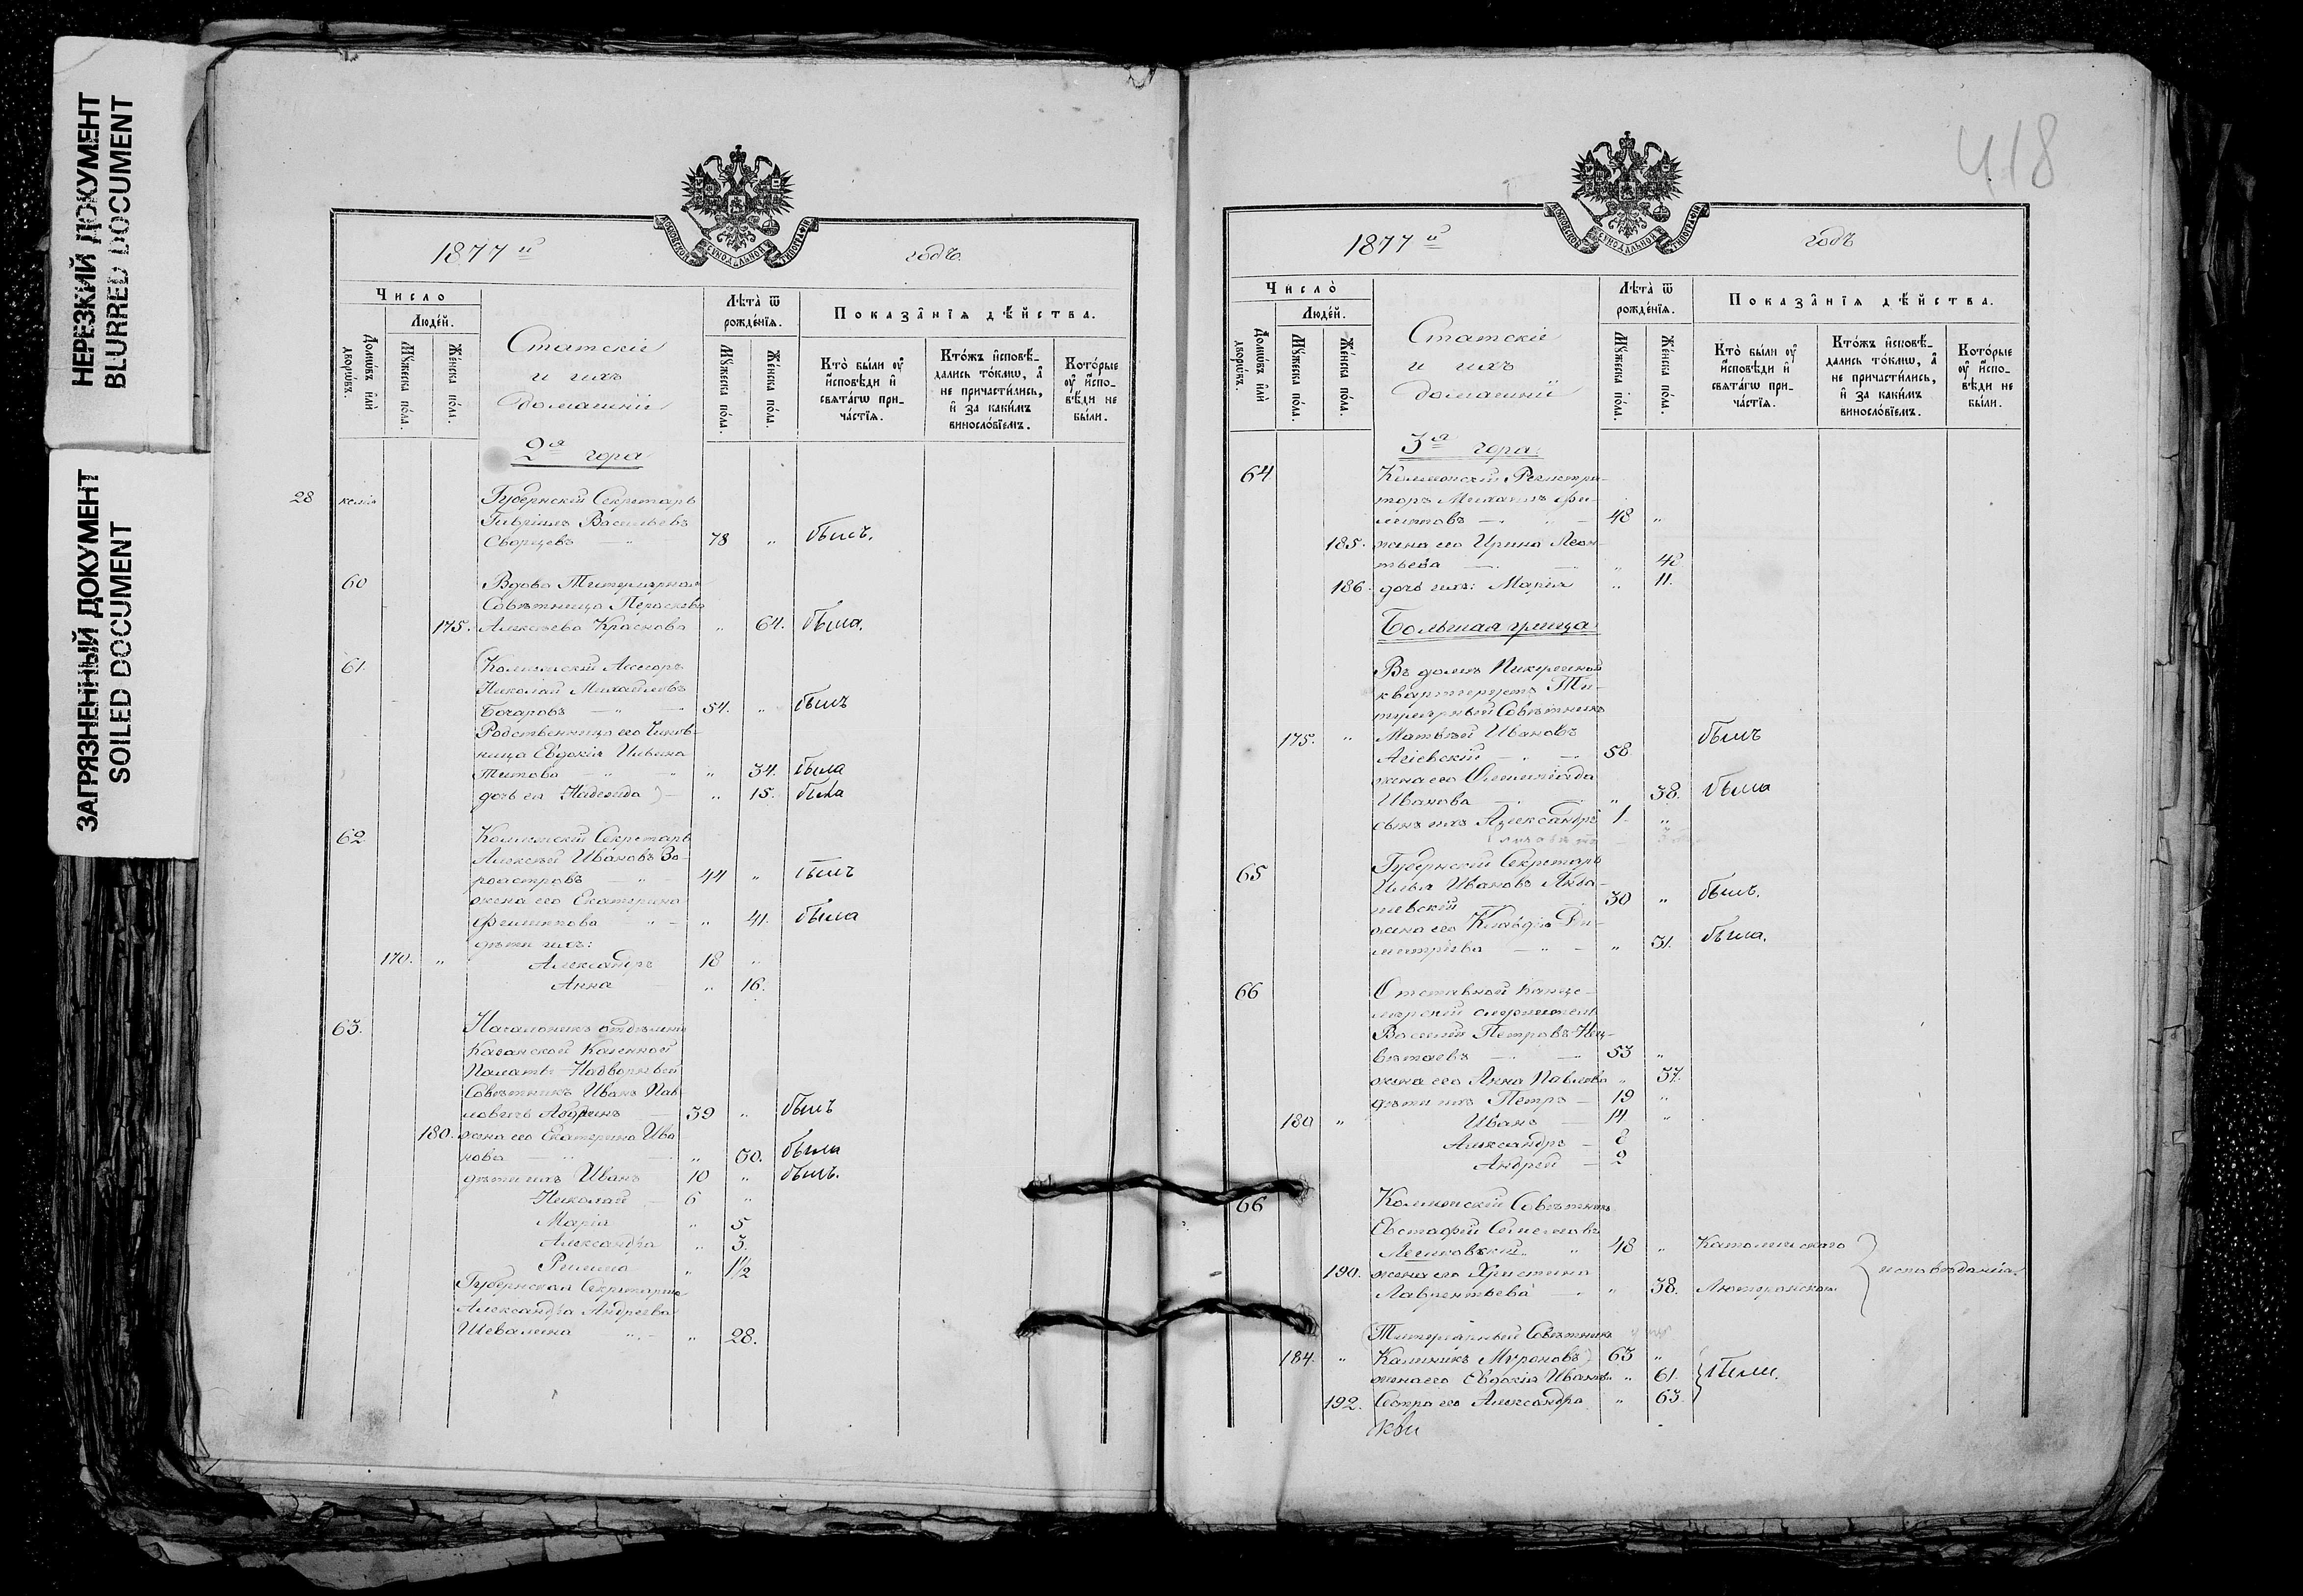 НЕРЕЗКИЙ ДОКУМЕНТ
BLURRED DOCUMENT
ЗАГРЯЗНЕННЫЙ ДОКУМЕНТ
SOILED DOCUMENT
МОСКОВСКОЙ СѴНОДАЛЬНОЙ ТИПОГРАФІИ
1877 й годъ.
Число
Люде́й.
Домѡ́въ и҆лѝ дворѡ́въ.
Мꙋ́жеска по́ла.
Же́нска по́ла.
Статскіе
и ихъ
домашніе
Лѣта̀ ѿ рожде́нїѧ.
Мꙋ́жеска по́ла.
Же́нска по́ла.
Показа̑нїѧ дѣ́йства.
Кто̀ бы́ли ᲂу҆ и҆́сповѣди и҆ свѧта́гѡ при-
ча́стїѧ.
Кто́жъ и҆сповѣ́-
дались то́кмѡ, а҆
не причасти́лись,
и҆ за каки́мъ
винослѡ́вїемъ.
Кото́рые
ᲂу҆ и҆́спо-
вѣди не
бы́ли.
2я гора
28 келія Губернскій Секретарь
Гавріилъ Васильевъ
Скорцевъ — 78 " былъ.
60 Вдова Титулярная
Совѣтница Параскева
175. Алексѣева Краснова " 64. была.
61. Коллежскій Ассесоръ
Николай Михайловъ
Бочаровъ — " 54. " былъ
Родственница его Чинов-
ница Евдокія Ильина
Титова — " 34. была
дочь ея Надежда) — " 15. была
62 Коллежскій Секретарь
Алексѣй Ивановъ Зо-
роастровъ — " 44 " былъ
жена его Екатерина
Филиппова " — " 41. была
дѣти ихъ:
170. " Александръ 18 "
Анна " 16.
63. Начальникъ отдѣленія
Казанской Казенной
Палаты Надворный
Совѣтникъ Иванъ Пав
ловичъ — 39 " былъ
180. жена его Екатерина Ива
нова — " 30. была
дѣти ихъ Иванъ 10 " былъ.
Николай — 6 "
Марія " 5
Александра " 3.
Римма " 1½
Губернская Секретарша
Александра Андреева
Шевалина " — " 28.
418
МОСКОВСКОЙ СѴНОДАЛЬНОЙ ТИПОГРАФІИ
1877 й годъ
Число̀
Люде́й.
Домѡ́въ и҆лѝ дворѡ́въ.
Мꙋ́жеска по́ла.
Же́нска по́ла.
Статскіе
и ихъ
домашніе
Лѣта̀ ѿ рожде́нїѧ.
Мꙋ́жеска по́ла.
Же́нска по́ла.
Показа̑нїѧ дѣ́йства.
Кто̀ бы́ли ᲂу҆ и҆́сповѣди и҆ свѧта́гѡ при-
ча́стїѧ.
Кто́жъ и҆сповѣ́-
дались то́кмѡ, а҆
не причасти́лись,
и҆ за каки́мъ
винослѡ́вїемъ.
Кото́рые
ᲂу҆ и҆́спо-
вѣди не
бы́ли.
3я гора
64 Коллежскій Регистра-
торъ Михаилъ Фи-
липповъ — " 48 "
185. жена его Ирина Леон-
тьева — " 42
186. дочь ихъ: Марія " 11.
Большая улица
Въ домѣ
квартируетъ Ти-
тулярный Совѣтникъ
175. " Матвѣй Ивановъ былъ
Агіевскій — 58
жена его Олимпіада
Иванова " 38. была
сынъ ихъ Александръ 1 "
65 Губернскій Секретарь
Илья Ивановъ
30 " былъ.
жена его Клавдія Ди-
митріева — " 31. была.
66 Отставной Канце-
лярскій служитель
Василій Петровъ Не-
вѣтаевъ — 53 "
жена его Анна Павлова " 37.
дѣти ихъ Петръ — 19 "
180 " Иванъ 14 "
Александръ — 8
Андрей — 2
66 Коллежскій Совѣтникъ
Евстафій Семеновъ
48 " Католическаго
190. жена его Христина исповѣданія.
Лаврентьева " 38. Лютеранскаго
(Титулярный Совѣтникъ
184. " Калиникъ Мироновъ) 63 "
жена его Евдокія Иванова " 61. были.
192. Сестра его Александра " 63.